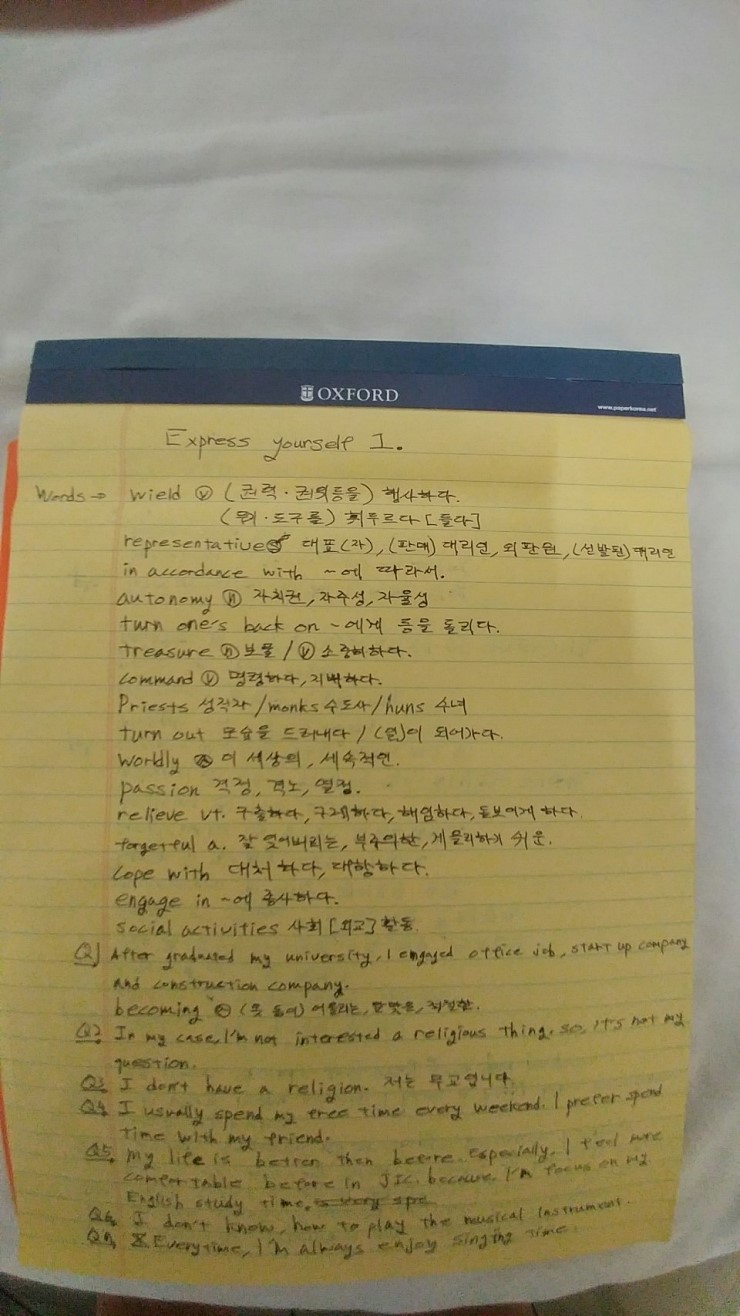 OXFORD
www.paperkorea.net
Express yourself 1.
Words → wield ⓥ (권력·권위등을) 행사하다.
(무기·도구를) 휘두르다 [들다]
representative 대표(자), (판매) 대리인, 외판원, (선발된) 대리인
in accordance with ~에 따라서.
autonomy ⓝ 자치권, 자주성, 자율성
turn one's back on ~에게 등을 돌리다.
treasure ⓝ 보물 / ⓥ 소중히하다.
command ⓥ 명령하다, 지배하다.
Priests 성직자 / monks 수도사 / nuns 수녀
turn out 모습을 드러내다 / (일)이 되어가다.
Worldly ⓐ 이 세상의, 세속적인.
passion 격정, 격노, 열정.
relieve vt. 구출하다, 구제하다, 해임하다, 돋보이게 하다.
forgetful a. 잘 잊어버리는, 부주의한, 게을리하기 쉬운.
Cope with 대처하다, 대항하다.
engage in ~에 종사하다.
social activities 사회 [외교] 활동.
Q1 After graduated my university, I engaged office job, start up company
and construction company.
becoming ⓐ (옷 등이) 어울리는, 알맞은, 적절한.
Q2 In my case, I'm not interested a religious thing. so, it's not my
question.
Q3 I don't have a religion. 저는 무교입니다.
Q4 I usually spend my free time every weekend. I prefer spend
time with my friend.
Q5. My life is better then before. Especially, I feel more
comfortable before in JIC. because, I'm focus on my
English study time.
Q6. I don't know, how to play the musical instrument.
Q7. Everytime, I'm always enjoy singing time.